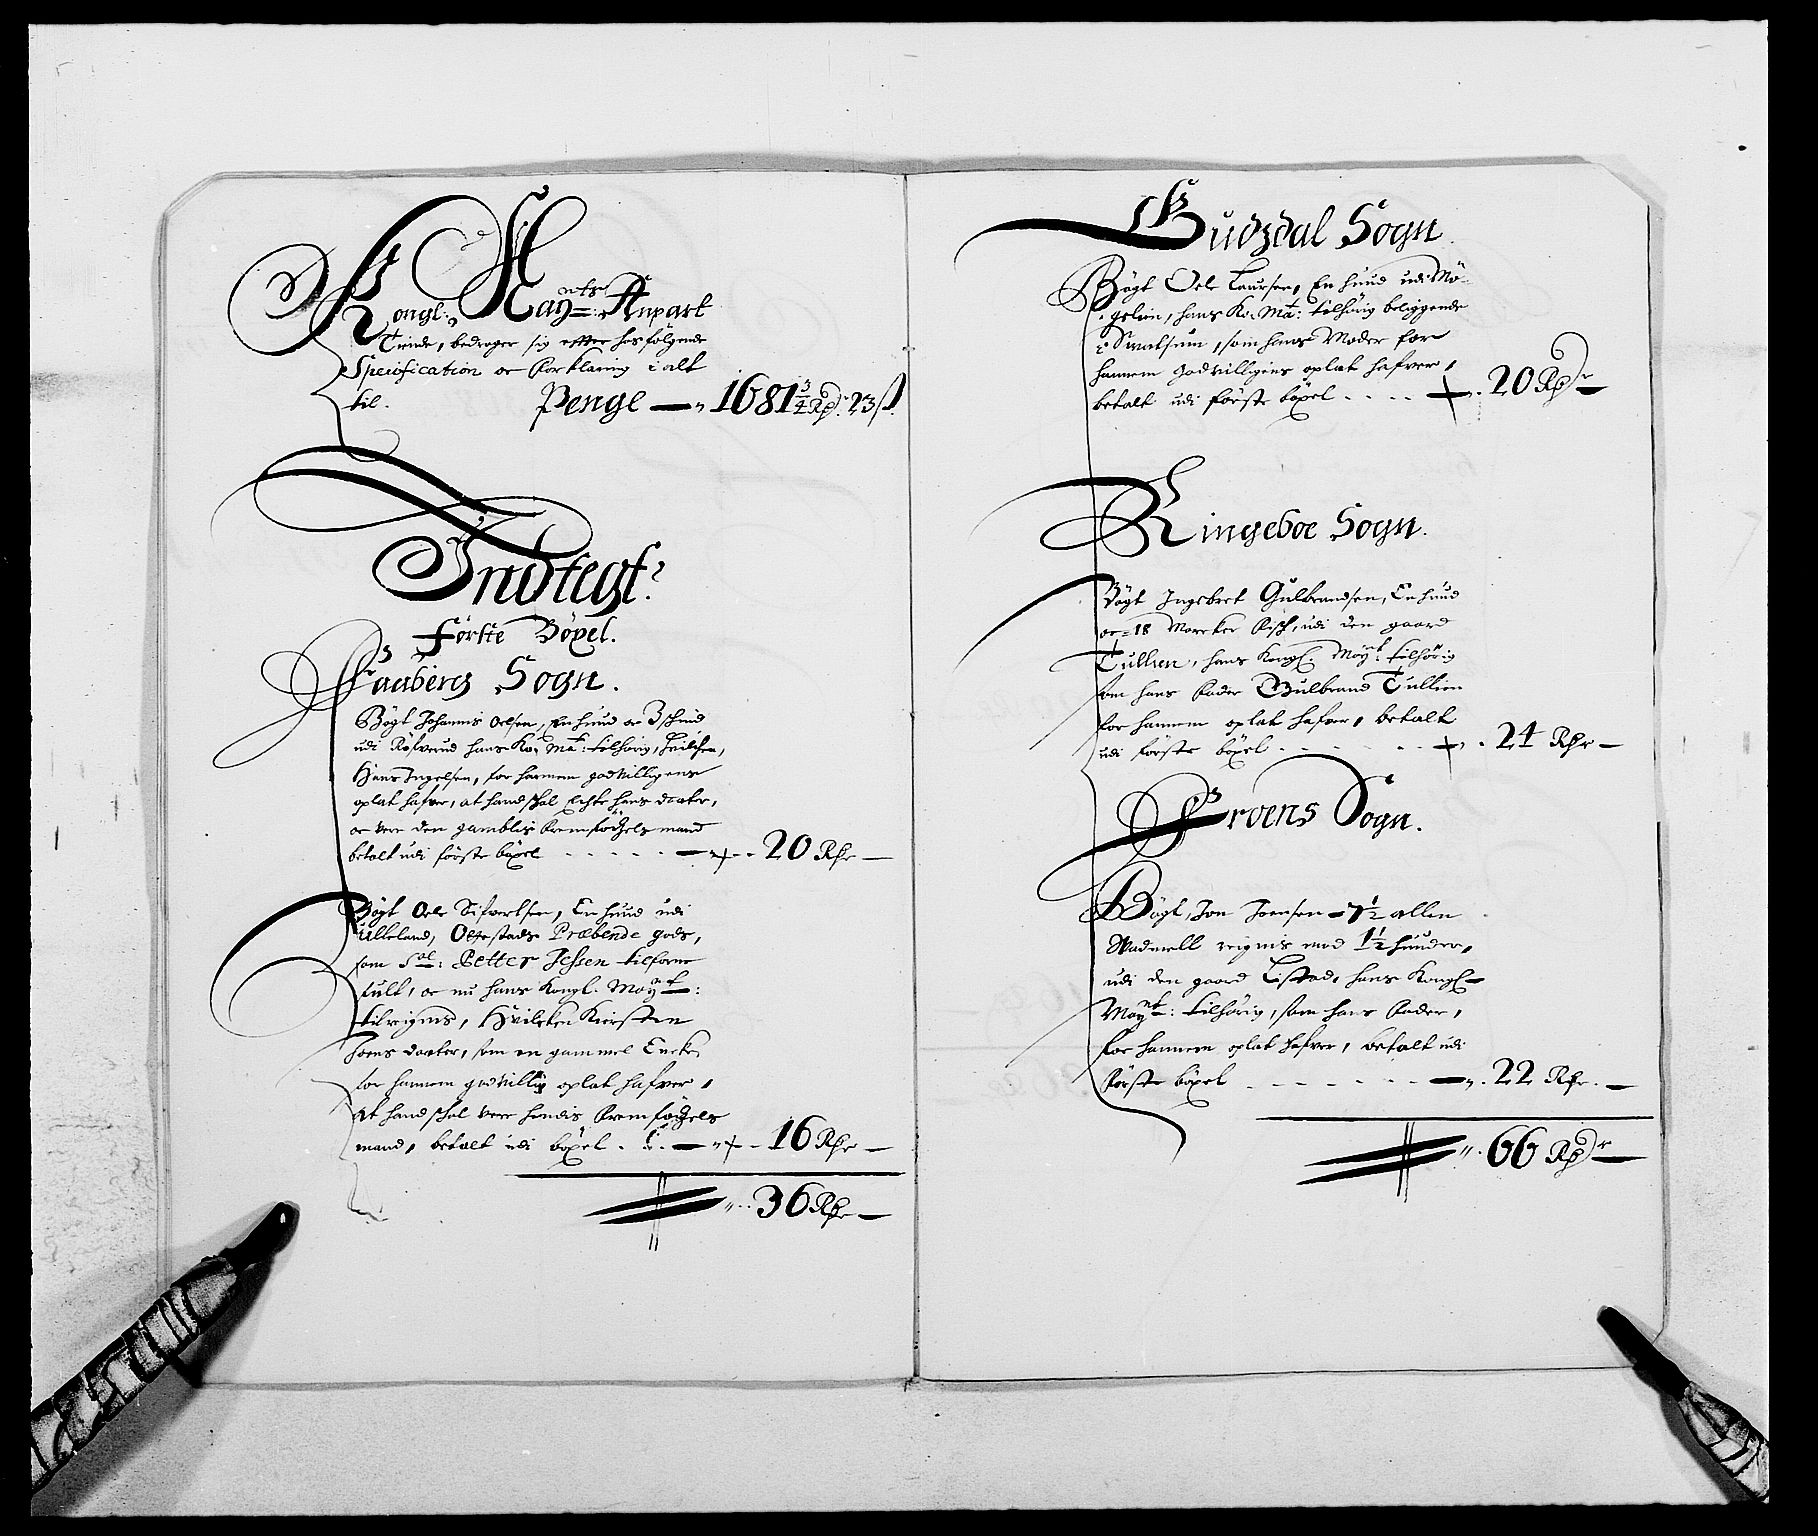 Kongl: Mayts: Anpart
Tiende, bedrager sig effter hosfølgende
Specification oc Forklaring i alt
til. Penge — 1681¾ Rdr: 23 ß.
Indtegt:
Første Böxel.
Faaberg Sogn.
Bögt Johannis Oelsen, En huud oc 3 schind
udi hans Ko: Ma: tilhörig,
Hans Ingelsen, for hannem godvilligens
oplat hafver, at hand schal Echte hans daater,
oc vere den gamblis fremfödzels mand
betalt udi förste böxel - - - - - 20 Rdr —
Bögt Oele Sifvertsen, En huud udi
Ulleland, Præbende gods,
som Sal: Petter Jessen tilforne
fult, oc nu hans Kongl. Mayt:
tilreignis, Hvilcken Kiersten
Joens daater, som en gammel Encke,
for hannem godvillig oplat hafver,
at hand schal vere hendis fremfödzels
mand, betalt udi böxel . 16 Rdr —
36 Rdr —
Gudzdal Sogn.
Bögt Oele Laursen, En huud udi Mö-
gelien, hans Ko: Ma: tilhörig beliggende
i Svatsum, som hans Moder for
hannem godvilligens oplat hafver,
betalt udi förste böxel . . . . 20 Rdr —
Ringeboe Sogn.
Bögt Ingebret Gulbrandsen, En huud
oc 18 Marcker Fisch, udi den gaard
Tullien, hans Kongl. Mayt: tilhörig
som hans Fader Gulbrand Tullien
for hannem oplat hafver, betalt
udi förste böxel - - - - - 24 Rdr —
Froens Sogn.
Bögt, Jon Joensen - 7½ allen
Wadmell reignis mod 1½ huuder,
udi den gaard Listad, hans Kongl—
Mayt: tilhörig, som hans Fader,
for hannem oplat hafver, betalt udi
förste böxel - - - - - - 22 Rdr. —
66 Rdr —